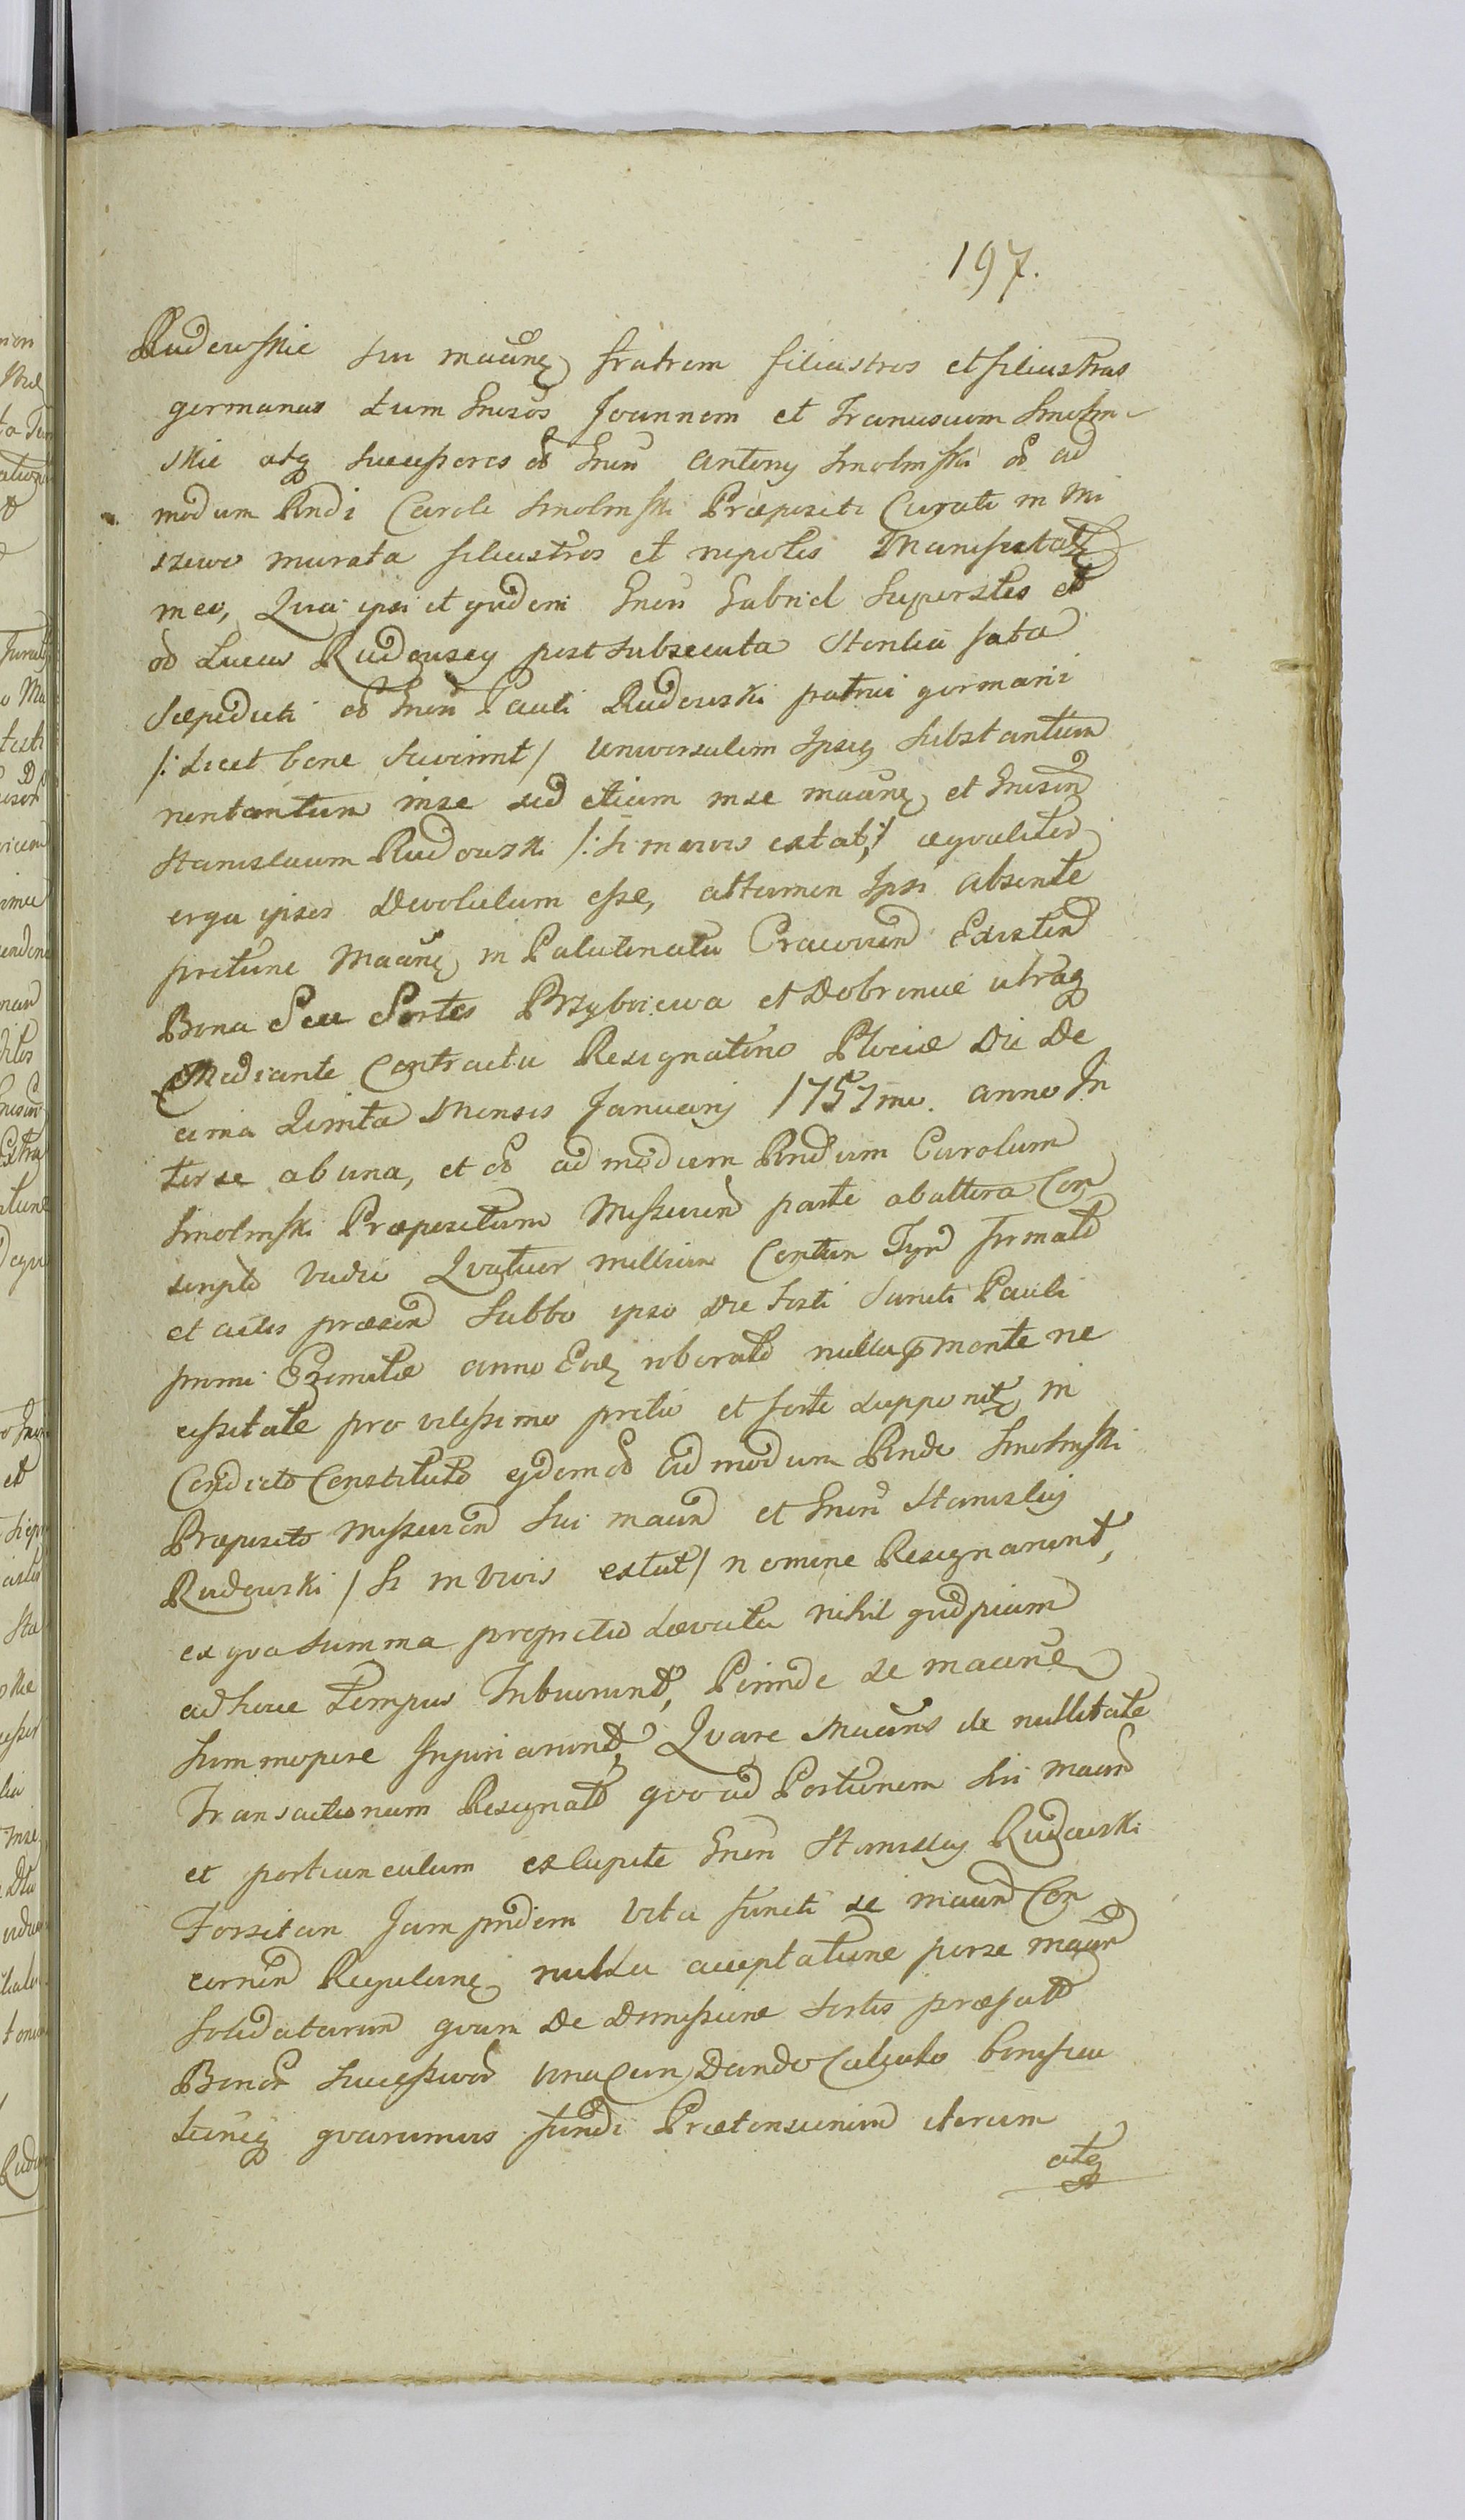 197.
Rudowskie sui maãnẽ fratrem filiastros et filiastras
germanas tum Gnsõs Joannem et Franciscum Smolin
skie atq successores oб Gnsi Antony Smolinski oб ad
modum Rndi Caroli Smolinski Præpositi Curati in Mi
szewo murata filiastros et nepotes Manifestatq
in eo, Quia ipsi et quidem Gnsi Gabriel Superstes et
oб Lucas Rudowscy post subsecuta Sterilia fata
Sæpedicti oб Gnsi Pauli Rudowski patrui germani
/: Licet bene sciverint / Universalem Ipsiq substantiam
non tantum in se sed etiam in se maãnẽ et Gnsum
Stanislaum Rudowski /: si in vivis extat :/ æqualiter
erga ipsos Devolutum esse, attamen Ipsi absente
protunc Maãnẽ in Palatinatu Cracovien Existen
Bona Seu Sortes Przyborowa et Dobronice utraq
Mediante Contractu Resignatorio Plociæ Die De
cima Quinta Mensis January 1757mo. anno In
ter se ab una, et oб admodum Rndum Carolum
Smolinski Præpositum Misseviens parte ab altera Con
scripto Vadio Quatuor millium Centum Tynf firmato
et actis præsen Sabbo ipso die festi Sancti Pauli
primi Eremitæ anno Eoq roborato nulla pmente ne
cessitate pro vilissimo pretio et forte supponitq in
Condicto Constituto eidem oб admodum Rndo Smolinski
Præposito Misseviens Sui maãn et Gnsi Stanislai
Rudowski / Si in vivis extat / nomine Resignarunt,
ex qua summa propretio Levata nihil quidpiam
adhuc Tempus Tribuerunt, Perinde se maãnẽ
Summopere Injuriarunt, Quare Maãns de nullitate
Transactionum Resignat quoad Portionem Sui maãn
et portiunculam ex capite Gnsi Stanislai Rudowski
Forsitan Jam pridem Vita functi se maãn Con
cernen Regulanẽ nulla acceptatione per se maãn
solidatarum quam De Dimissione Sortis præfat
Bonor successivor una cum Dando Calculo benefica
tionũq quarumvis fundi Prætensionum iterum
atq